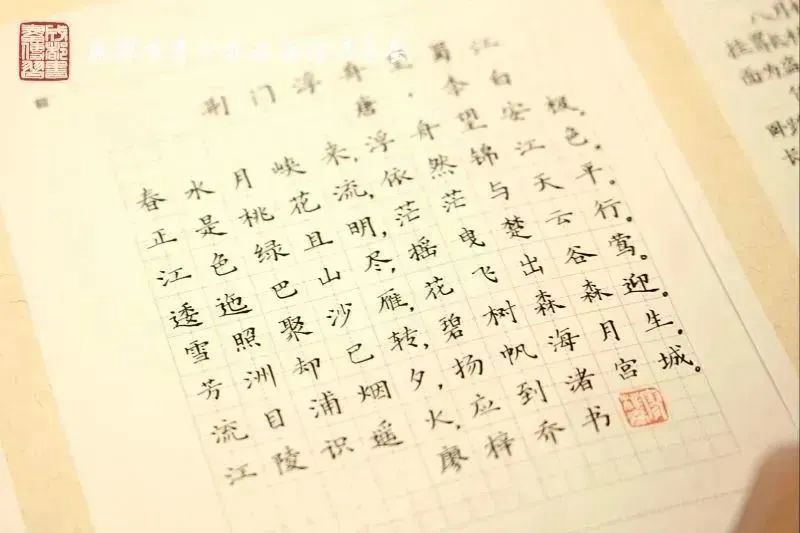 荆门浮舟望蜀江
唐·李白
春水月峡来,浮舟望安极。
正是桃花流,依然锦江色。
江色绿且明,茫茫与天平。
逶迤巴山尽,摇曳楚云行。
雪照聚沙雁,花飞出谷莺。
芳洲却已转,碧树森森迎。
流目浦烟夕,扬帆海月生。
江陵识遥火,应到渚宫城。
廖梓乔书
八月